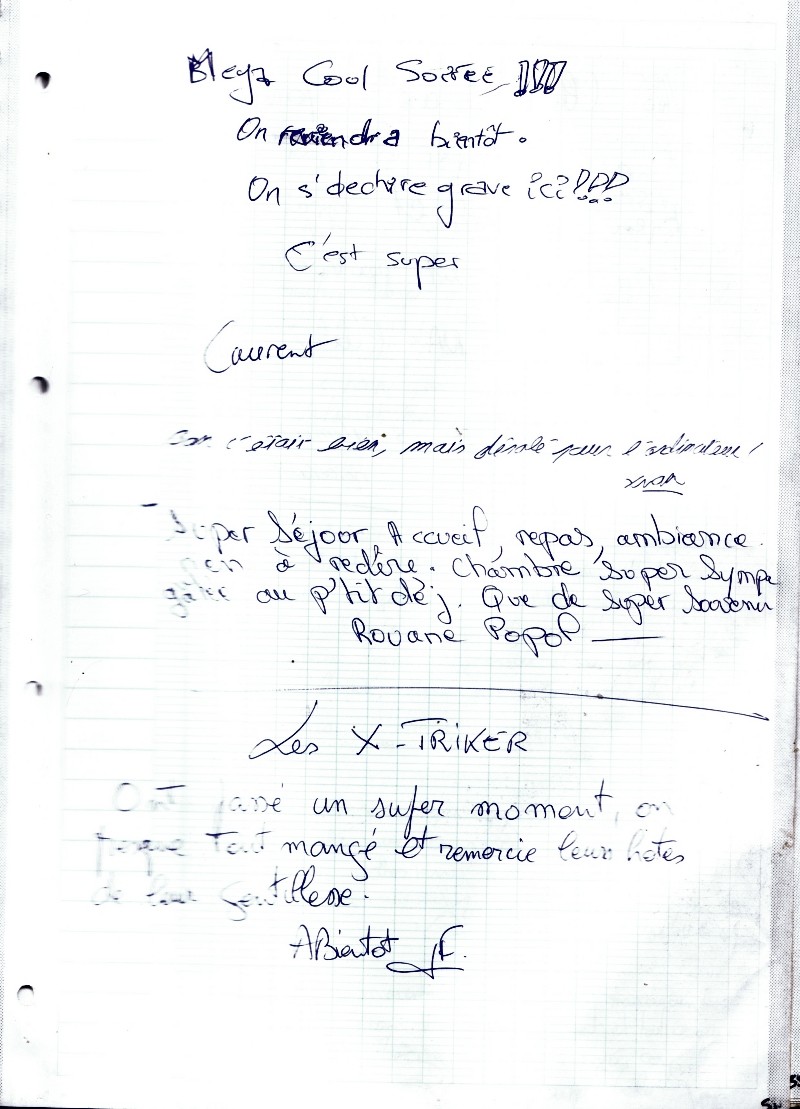 Mega Cool Soirée !!!!
On reviendra bientôt.
On s'dechire grave ici!!!!
C'est super
Laurent
c'était bien, mais désolé pour l'ordinateur!
Super Séjour Accueil, repas, ambiance.
à redire. Chambre super sympa
au p'tit déj. Que de super souvenir
Rouane Popof
Les X-TRIKER
Ont passé un super moment, on
presque tout mangé et remercie leurs hôtes
de leur gentillesse.
A Bientot JF.